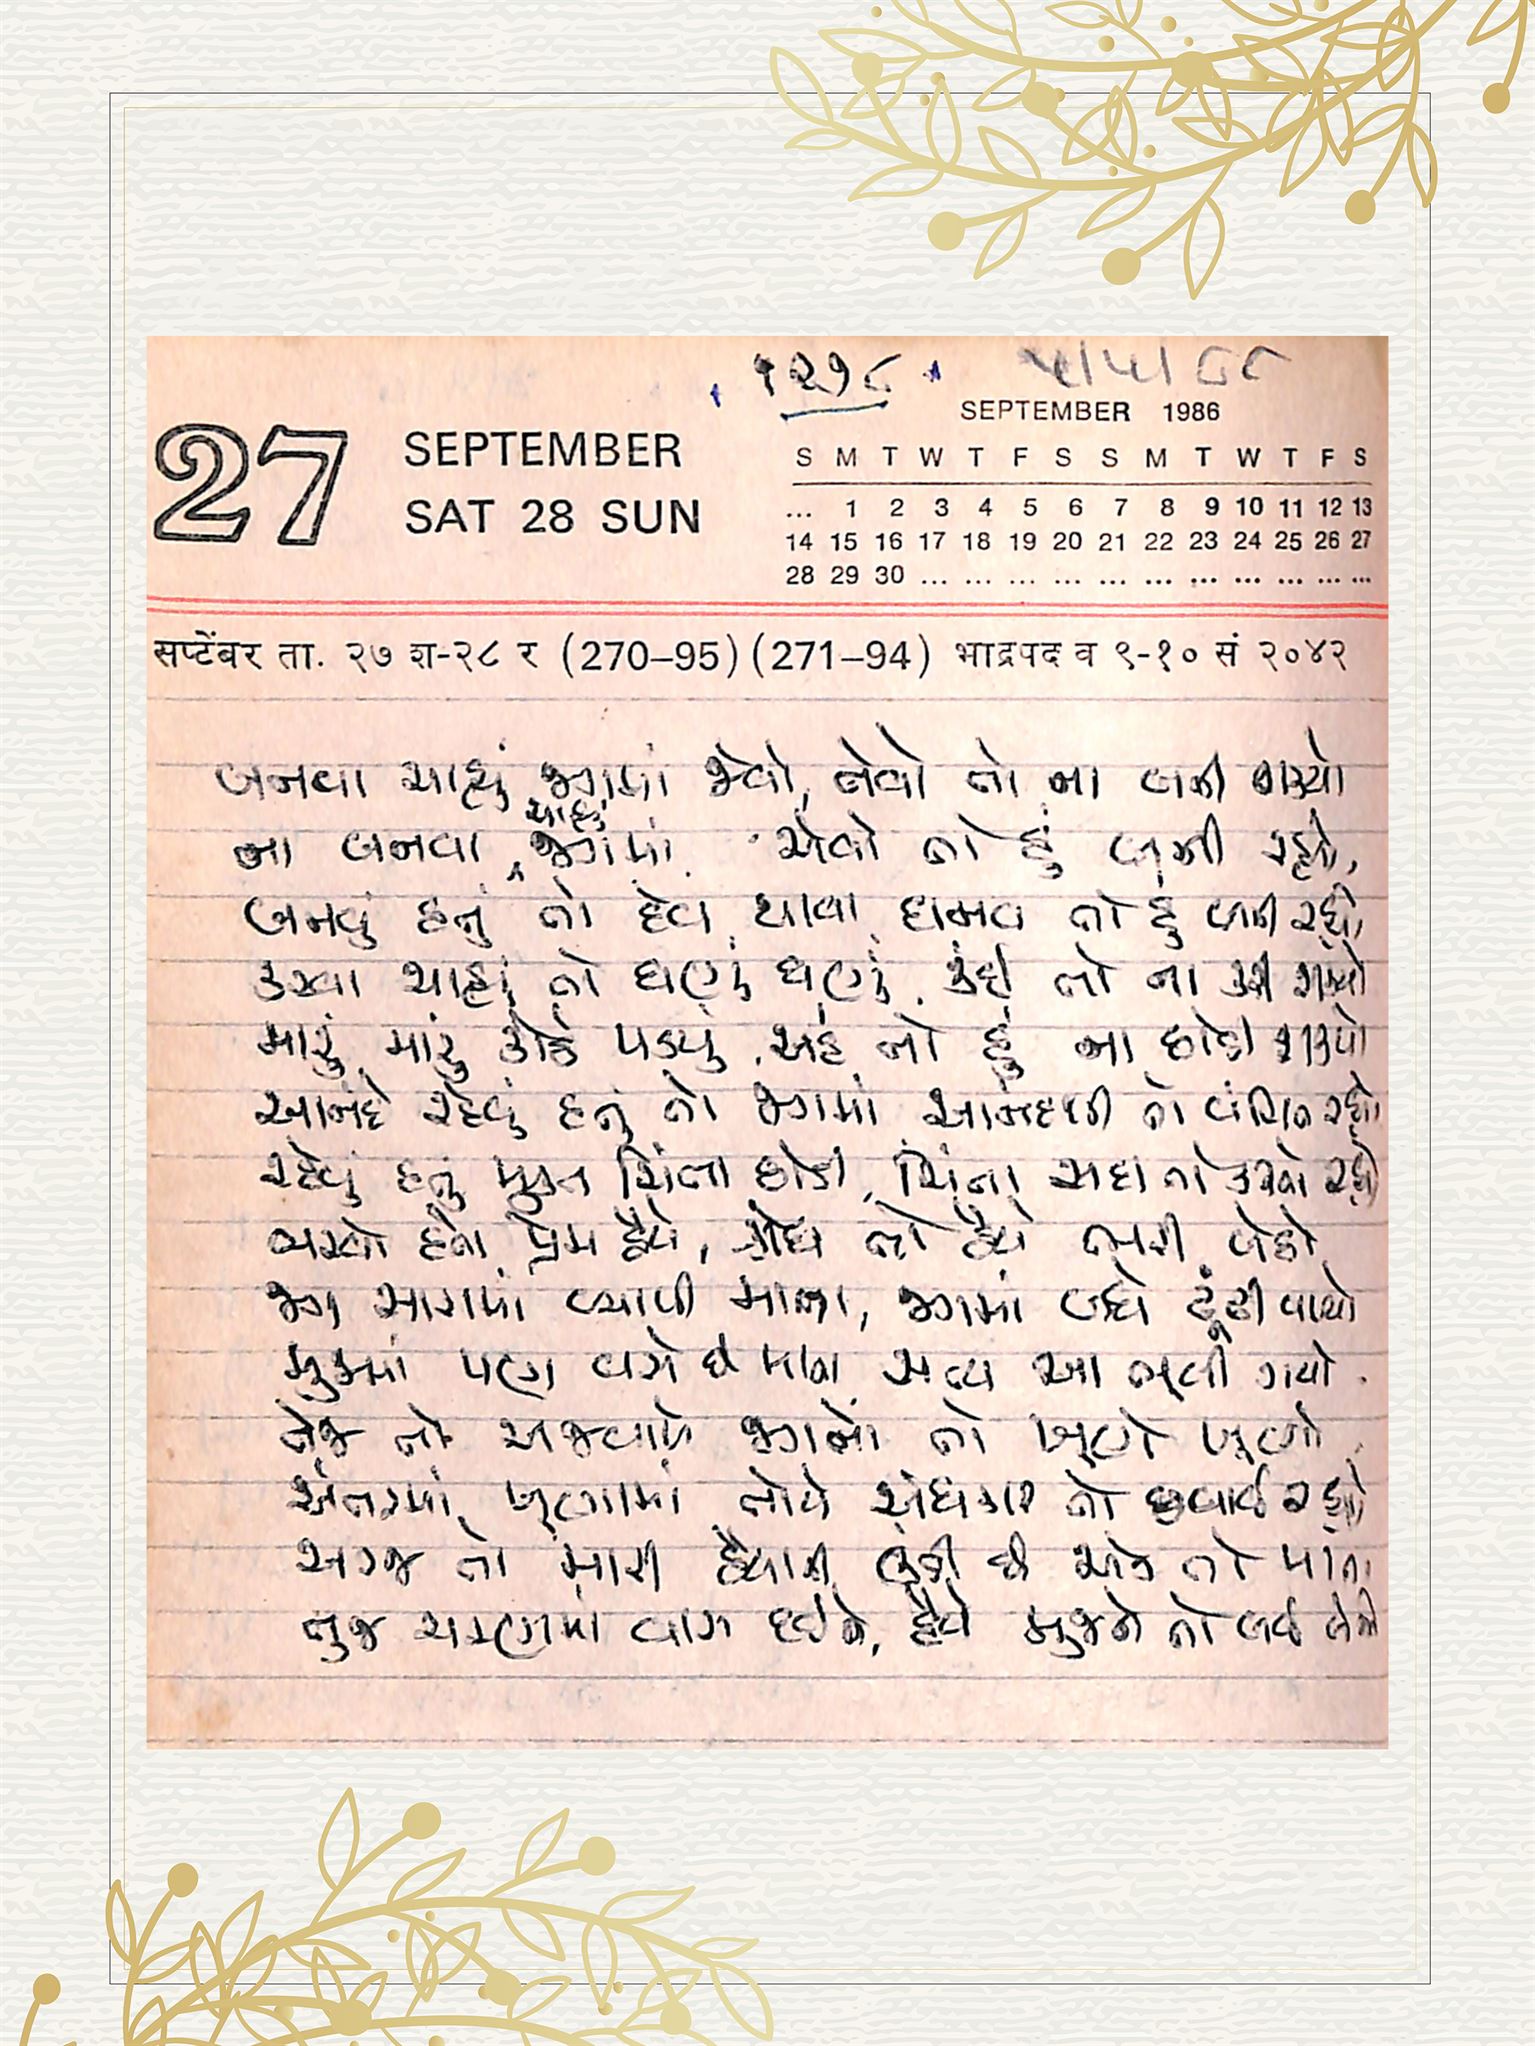 ૧૨૧૮
SEPTEMBER 1986
27 SEPTEMBER
SAT 28 SUN
S M T W T F S S M T W T F S
... 1 2 3 4 5 6 7 8 9 10 11 12 13
14 15 16 17 18 19 20 21 22 23 24 25 26 27
28 29 30 ... ... ... ... ... ... ... ... ... ... ...
सप्टेंबर ता. २७ श-२८ र (270–95) (271–94) भाद्रपद व ९-१० सं २०४२
બનવા ચાહ્યું જગમાં જેવો, તેવો તો ના બની શક્યો
ના બનવા ચાહ્યું જગમાં એવો તો હું બની રહ્યો,
બનવું હતું તો દેવ થાવા દાનવ તો હું બની રહ્યો,
કરવા ચાહ્યું તો ઘણું ઘણું, કંઈ તો ના કરી શક્યો
મારું મારું કોઠે પડ્યું, અહં તો હું ના છોડી શક્યો
આનંદે રહેવું હતું તો જગમાં આનંદથી તો વંચિત રહ્યો
રહેવું હતું મુક્ત ચિંતા છોડી, ચિંતા સદા તો કરતો રહ્યો
ભરવો હતો પ્રેમ હૈયે, ક્રોધ તો હૈયે ભરી બેઠો
જગ સારામાં વ્યાપી માતા, જગમાં બધે ઢૂંઢી વળ્યો
મુજમાં પણ વસે છે માતા સત્ય આ ભૂલી ગયો
તેજ તો અજવાળે જગનો તો ખૂણો ખૂણો,
અંતરમાં ખૂણામાં તોયે અંધકાર તો છવાઈ રહ્યો
અરજ તો મારી હૈયાની ઊંડી છે એક તો માતા
તુજ ચરણમાં સ્થાન દઈને, હૈયે મુજને તો લઈ લેજે